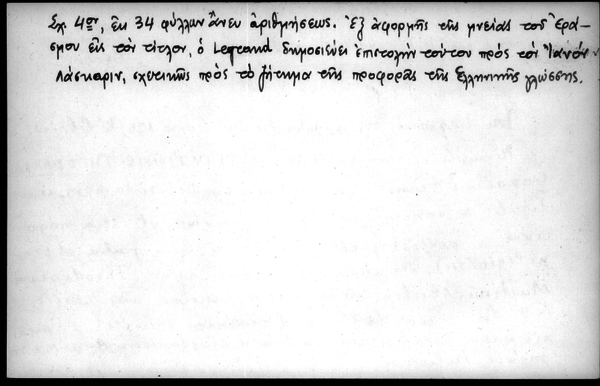 Σχ. 4ον, ἐκ 34 φύλλων ἄνευ ἀριθμήσεως. Ἐξ ἀφορμῆς τῆς μνείας τοῦ Ἐρά-
σμου εἰς τὸν τίτλον, ὁ Legrand δημοσιεύει ἐπιστολὴν τούτου πρὸς τὸν Ἰανὸν
Λάσκαριν, σχετικῶς πρὸς τὸ ζήτημα τῆς προφορᾶς τῆς ἑλληνικῆς γλώσσης.